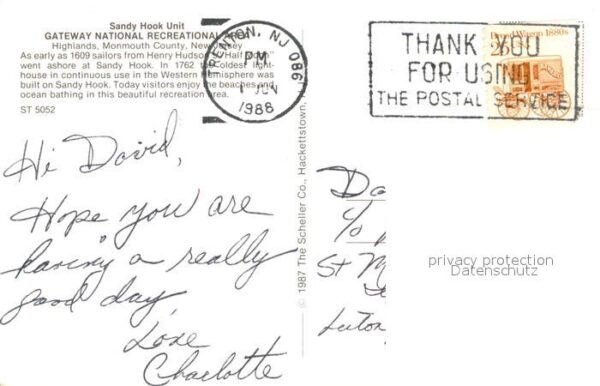 Sandy Hook Unit
GATEWAY NATIONAL RECREATIONAL AREA
Highlands, Monmouth County, New Jersey
As early as 1609 sailors from Henry Hudson's "Half Moon"
went ashore at Sandy Hook. In 1762 the oldest light-
house in continuous use in the Western Hemisphere was
built on Sandy Hook. Today visitors enjoy the beaches and
ocean bathing in this beautiful recreation area.
ST 5052
TRENTON, NJ 086
PM
1 JUN
1988
THANK YOU
FOR USING
THE POSTAL SERVICE
Bread Wagon 1880s
Hi David,
Hope you are
having a really
good day
Love
Charlotte
© 1987 The Scheller Co., Hackettstown,
Da
c/o
St M
Luton
privacy protection
Datenschutz